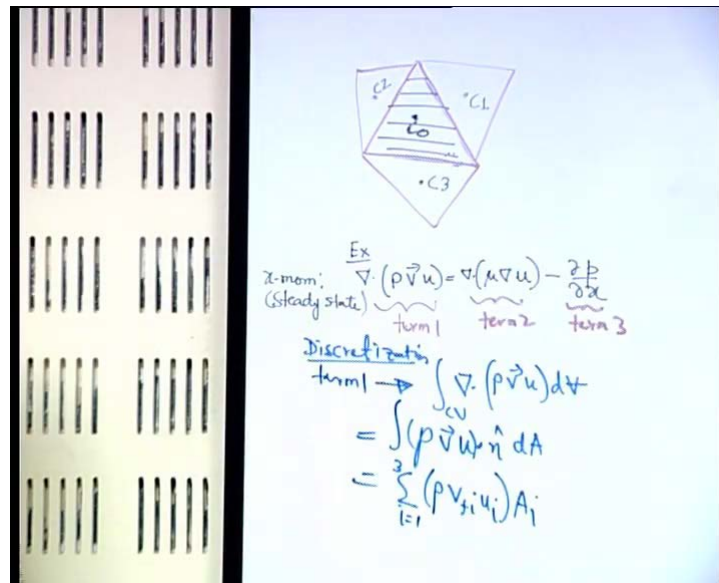 C2
C1
C0
C3
Ex
x-mom: ∇·(ρV⃗u) = ∇·(μ∇u) − ∂p/∂x
(Steady state)
term 1 term 2 term 3
Discretization
term 1 → ∫_CV ∇·(ρV⃗u) dV
= ∫(ρV⃗u)·n̂ dA
= Σ_{i=1}^{3} (ρ V_{fi} u_i) A_i